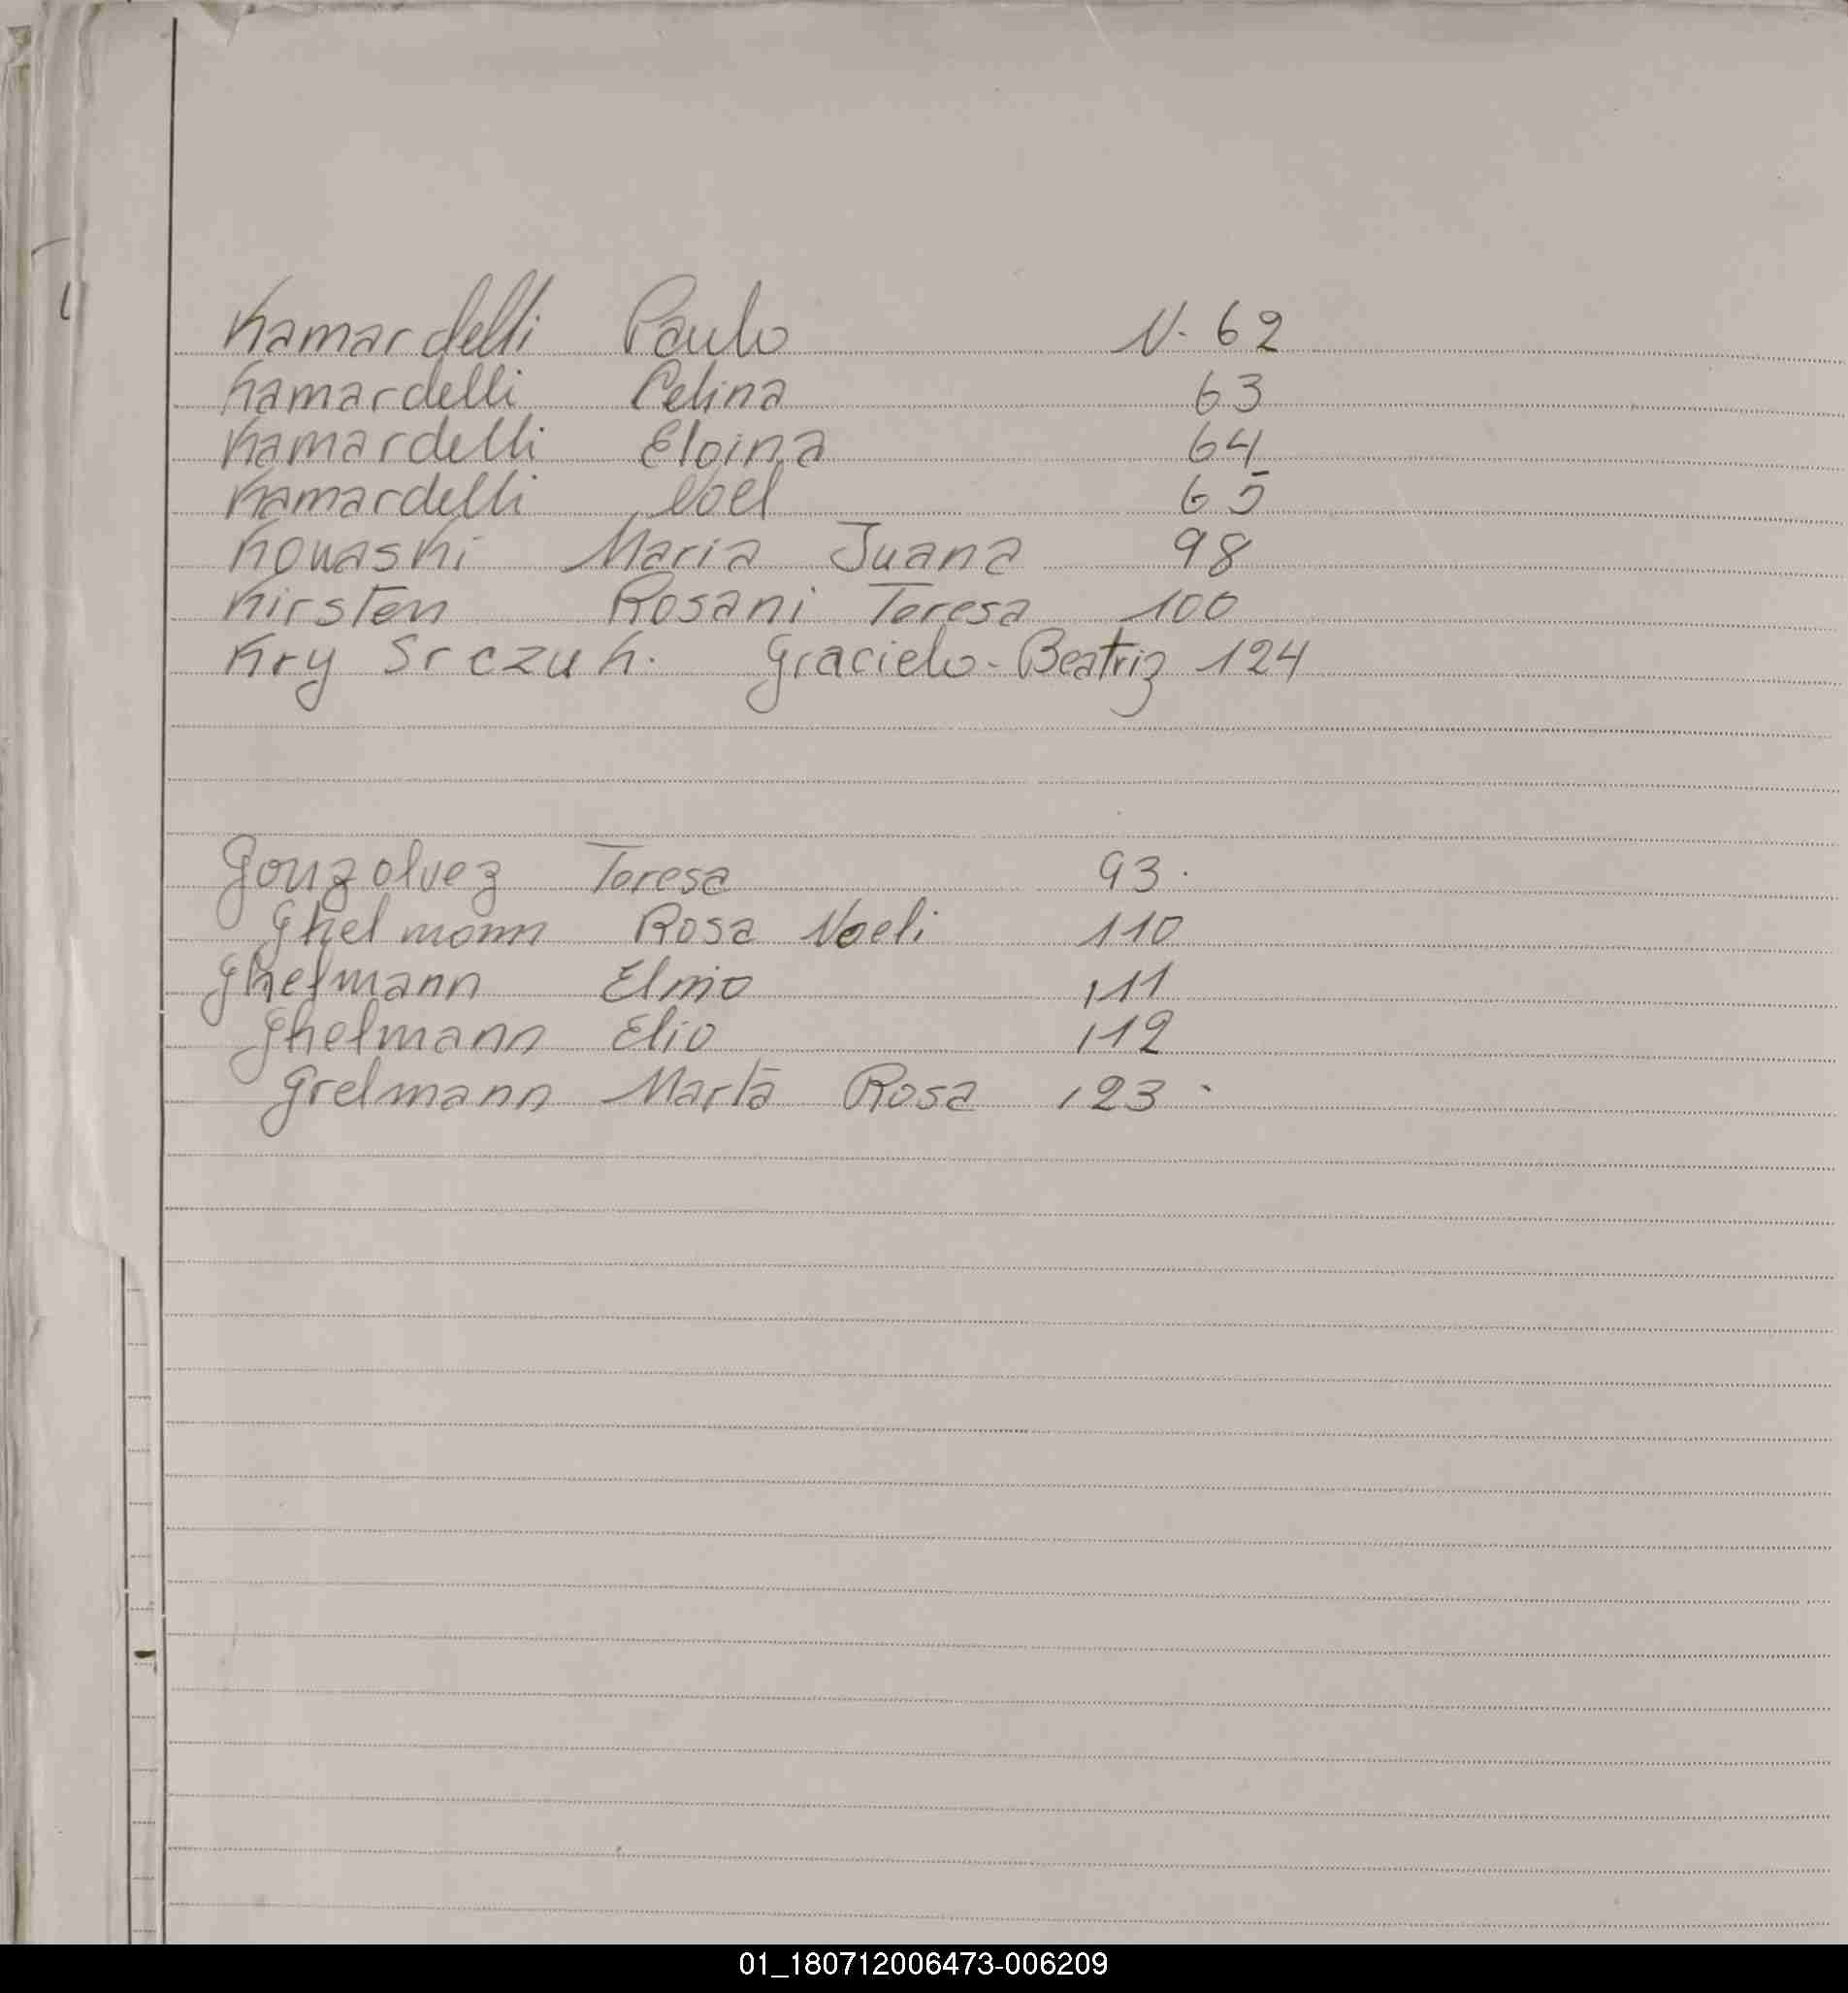 Kamardelli Paulo N. 62
Kamardelli Celina 63
Kamardelli Eloina 64
Kamardelli Noel 65
Kowaski Maria Juana 98
Kirsten Rosani Teresa 100
Kry Srczuk. Graciela-Beatriz 124
Gonzalvez Teresa 93.
Ghelmann Rosa Noeli 110
Ghelmann Elmo 111
Ghelmann Elio 112
Grelmann Marta Rosa 123.
01_180712006473-006209